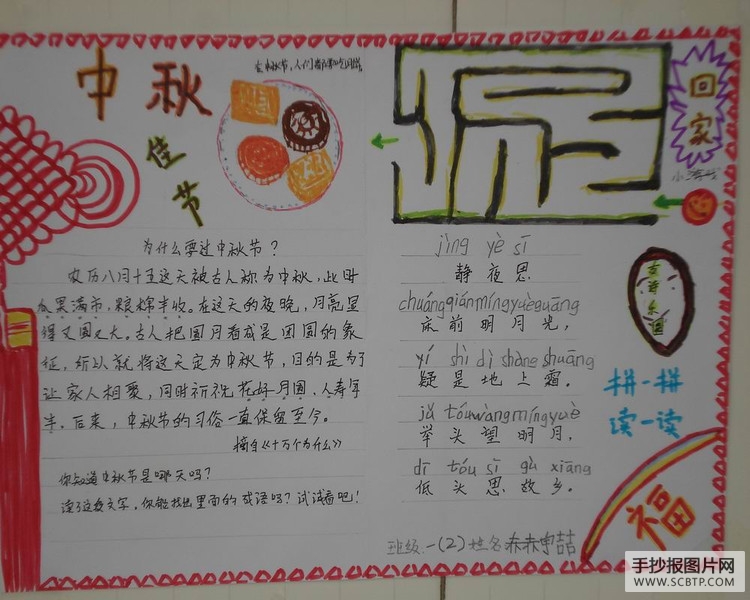 中秋
佳节
在中秋节，人们都要吃月饼。
回家
为什么要过中秋节？
农历八月十五这天被古人称为中秋，此时
瓜果满市，粮棉丰收。在这天的夜晚，月亮显
得又圆又大。古人把圆月看成是团圆的象
征，所以就将这天定为中秋节，目的是为了
让家人相聚，同时祈祝花好月圆、人寿年
丰。后来，中秋节的习俗一直保留至今。
摘自《十万个为什么》
你知道中秋节是哪天吗？
读了这段文字，你能找出里面的成语吗？试试看吧！
jìng yè sī
静夜思
chuángqiánmíngyuèguāng
床前明月光，
yí shì dì shàng shuāng
疑是地上霜。
jǔ tóuwàngmíngyuè
举头望明月，
dī tóu sī gù xiāng
低头思故乡。
古诗乐园
拼一拼
读一读
福
班级一(2)姓名
手抄报图片网
WWW.SCBTP.COM